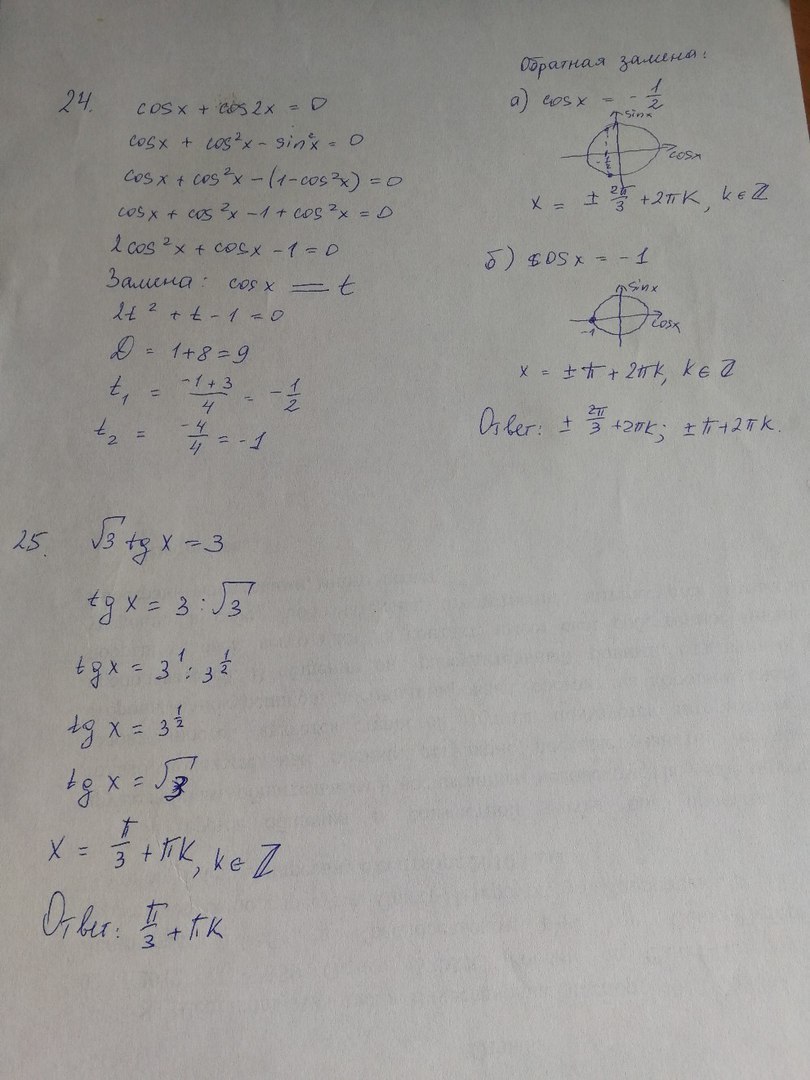 24.
cosx + cos2x = 0
cosx + cos²x - sin²x = 0
cosx + cos²x - (1-cos²x) = 0
cosx + cos²x - 1 + cos²x = 0
2cos²x + cosx - 1 = 0
Замена: cosx = t
2t² + t - 1 = 0
D = 1+8 = 9
t₁ = (-1+3)/4 = -1/2
t₂ = -4/4 = -1
Обратная замена:
а) cosx = -1/2
sinx
cosx
-1/2
x = ± 2π/3 + 2πk, k ∈ ℤ
б) cosx = -1
sinx
cosx
-1
x = ±π + 2πk, k ∈ ℤ
Ответ: ± 2π/3 + 2πk; ±π + 2πk.
25.
√3 tg x = 3
tg x = 3 : √3
tg x = 3¹ : 3^(1/2)
tg x = 3^(1/2)
tg x = √3
x = π/3 + πk, k ∈ ℤ
Ответ: π/3 + πk